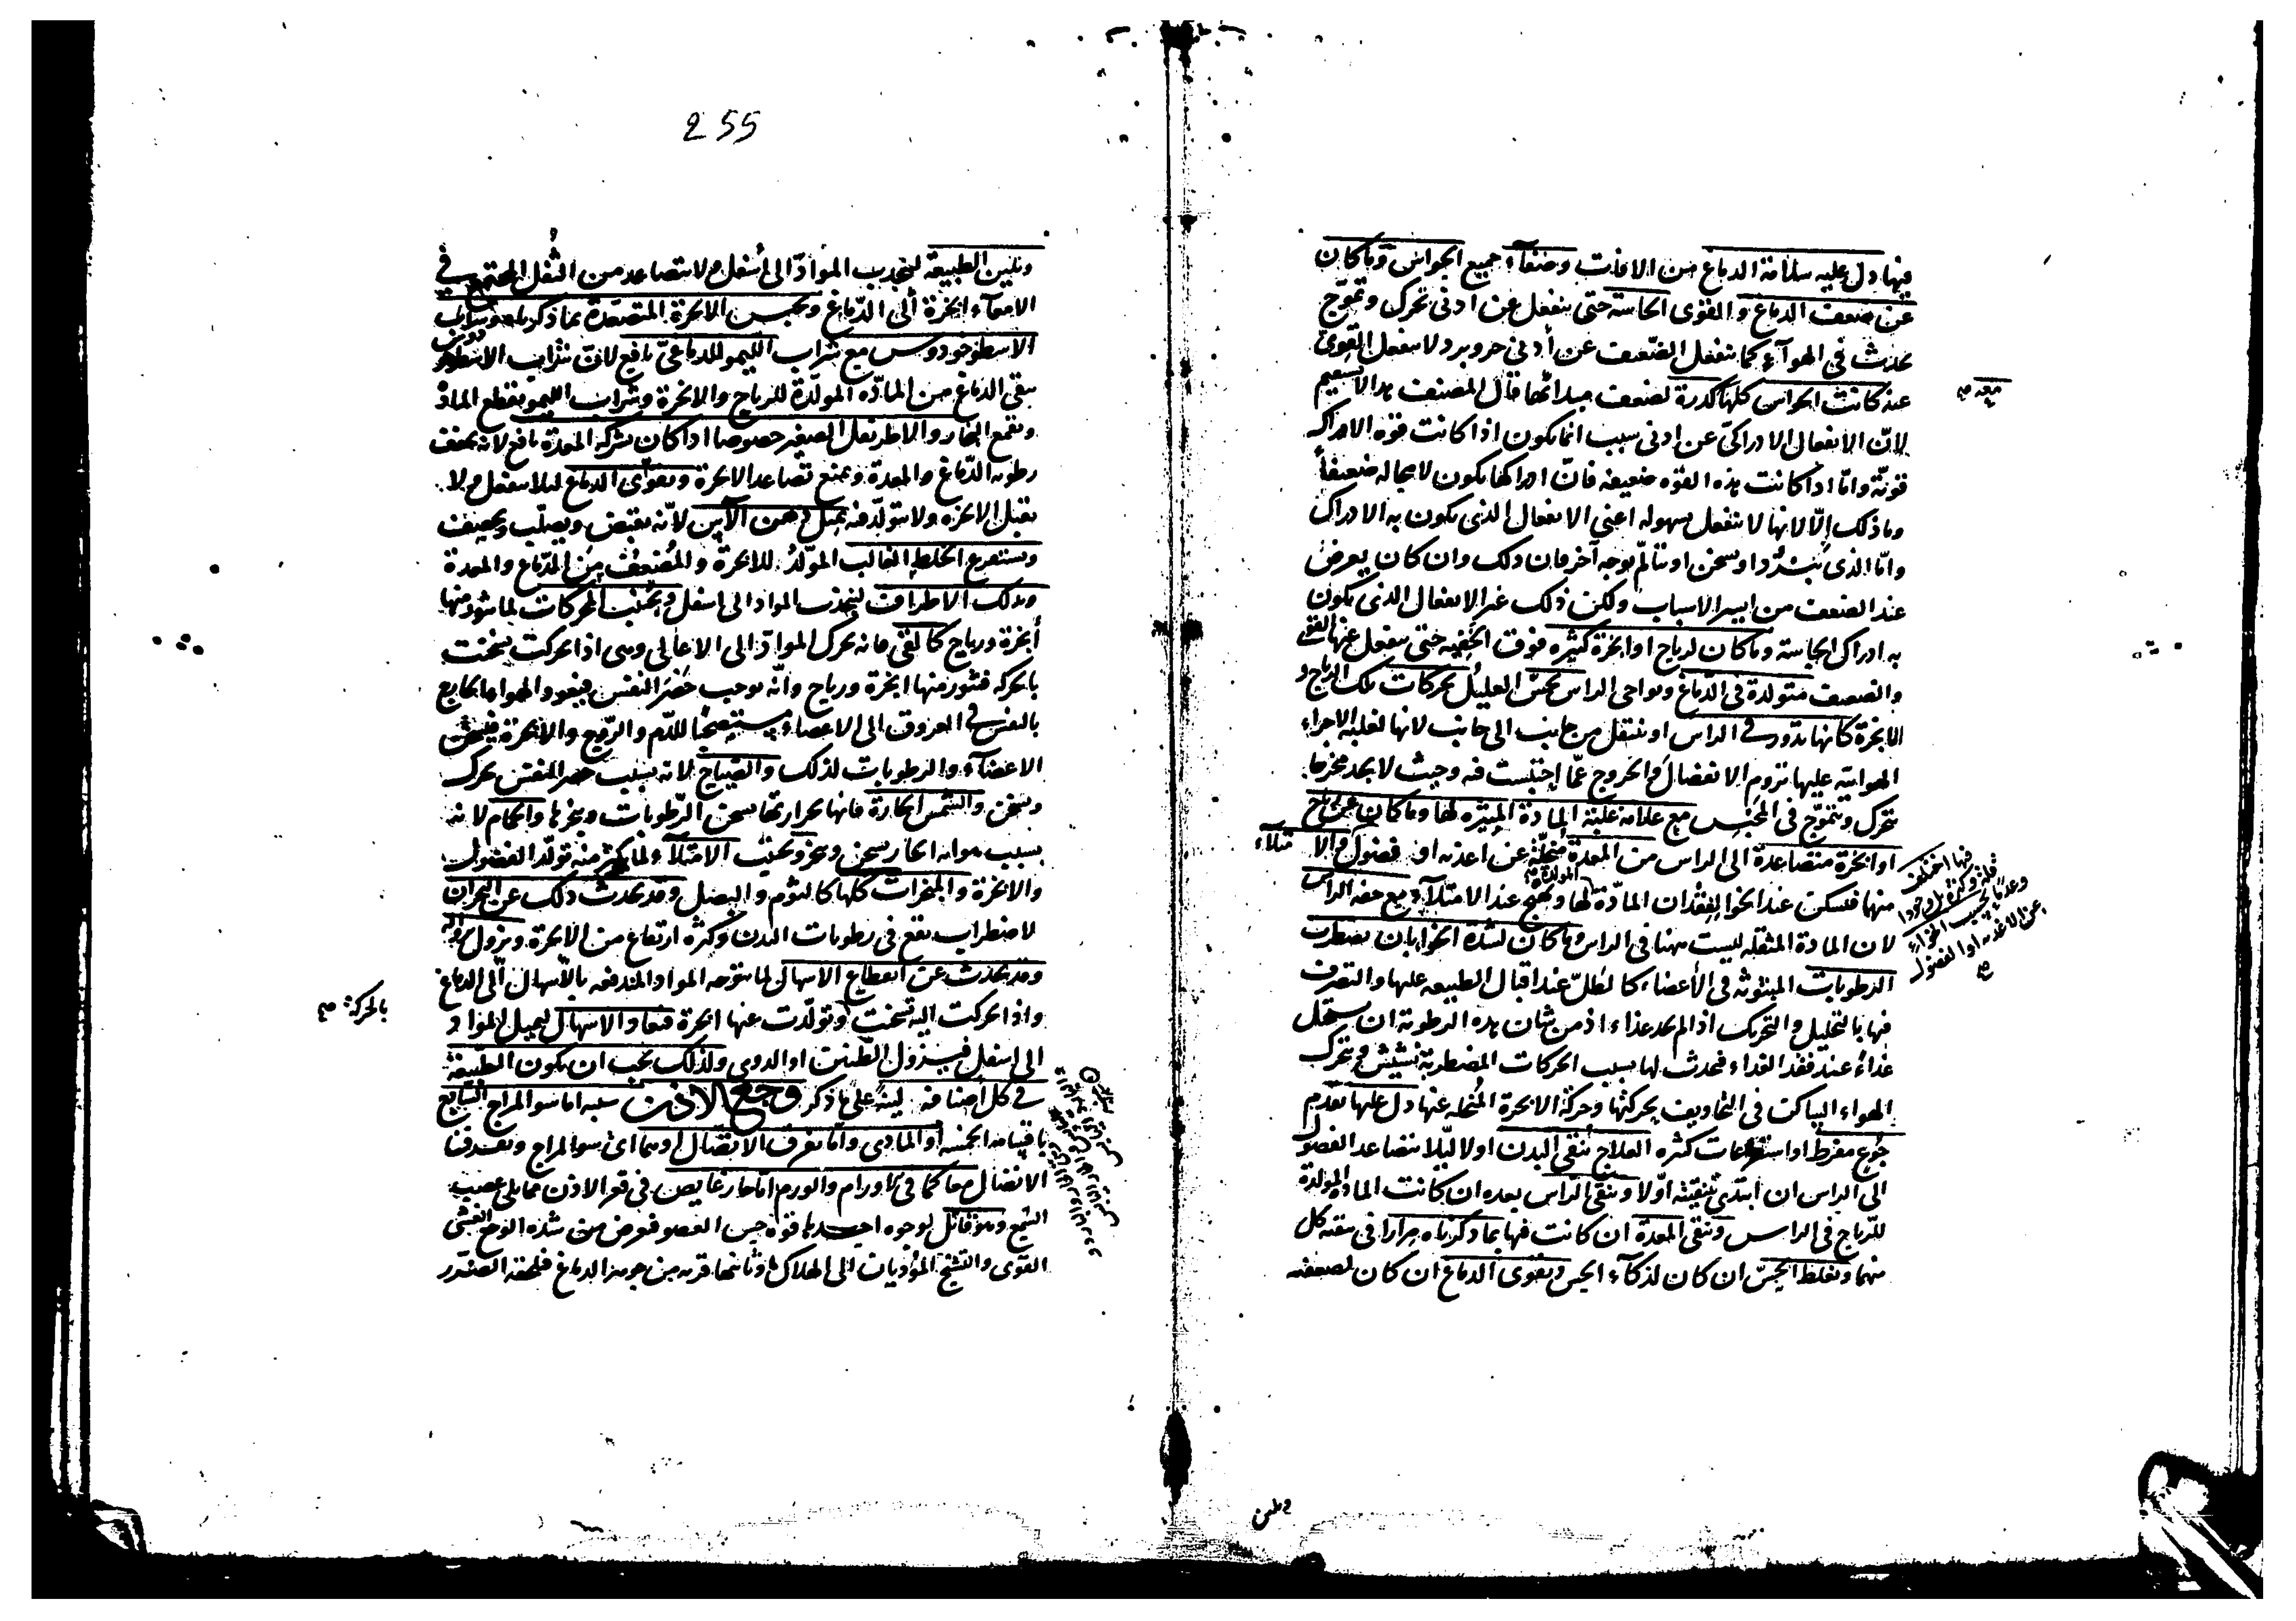 فيها دل عليه سلامة الدماغ من الافات وصفآء جميع الحواس وما كان
عن ضعف الدماغ والقوى الحاسة حتى ينفعل عن ادنى تحرك وتموّج
يحدث في الهوآء كما ينفعل الضعيف عن أدنى حر وبرد لا ينفعل القوىّ
عنه كانت الحواس كلها كدرة لضعف مبدائها قال المصنف هذا لا يستقيم
لانّ الانفعال الادراكىّ عن ادنى سبب انما يكون اذا كانت قوة الادراك
قويّة وامّا اذا كانت هذه القوه ضعيفه فانّ ادراكها يكون لا محاله ضعيفاً
وما ذلك إلّا لانها لا تنفعل بسهوله اعنى الانفعال الذى يكون به الادراك
وامّا الذى يتبرّد او يسخن او يتألّم بوجه آخر فان ذلك وان كان يعرض
عند الضعف من ايسر الاسباب ولكن ذلك غير الانفعال الذى يكون
به ادراك الحاسة وما كان لرياح او ابخرة كثيره فوق الخفيه حتى ينفعل عنها القوى
والضعيف متولدة في الدّماغ ونواحى الراس يحسّ العليل بحركات تلك الرياح و
الابخرة كانها تدور في الراس او تنتقل من جانب الى جانب لانها لغلبة الاجزاء
الهوائية عليها تروم الانفصال والخروج عمّا احتبست فيه وحيث لا يجد مخرجا
يتحرك ويتموّج في المحبس مع علامة غلبة المادة المثيره لها وما كان عن رياح
او ابخرة متصاعدة الى الراس من المعدة متحلّلة عن اغذيه او فضول والامتلآء
منها فيسكن عند الخوا لفقدان المادّة المولدة لها ويهيج عند الامتلآء مع خفه الراس
لان المادة المثقله ليست ههنا في الراس وما كان لشدة الخوا بان يضطرب
الرطوبات المبثوثه في الأعضاء كالطلّ عند اقبال الطبيعه عليها والتصرف
فيها بالتحليل والتحريك اذا لم يجد غذاء اذ من شان هذه الرطوبة ان يستحيل
غذاءً عند فقد الغذاء فيحدث لها بسبب الحركات المضطربة نشيش ويتحرك
الهواء الساكن في التجاويف بحركتها وحركة الابخرة المتحلله عنها دل عليها تقدم
جوع مفرط او استفراغات كثيره العلاج ينقى البدن اولا ليلا يتصاعد الفضول
الى الراس ان ابتدئ بتنقيته اوّلا وينقى الراس بعده ان كانت المادة المولدة
للرّياح في الراس وينقى المعدة ان كانت فيها بما ذكرناه مرارا في تنقيه كل
منهما ويغلظ الحسّ ان كان لذكآء الحس ويقوى الدماغ ان كان لضعفه
معه صح
فيها اختلف
قلة وكثرة بل وجودا
وعدما بحسب الخواء
عن الاغذيه او الفضول
صح
وتلين
255
وتلين الطبيعة لينجذب الموادّ الى أسفل ولا يتصاعد من الثفل المجتمع في
الامعآء ابخرة ألى الدّماغ ويحبس الابخرة المتصعّدة بما ذكرناه وشراب
الاسطوخودوس مع شراب الليمو للدماغىّ نافع لانّ شراب الاسطوخودوس
ينقى الدماغ من المادّه المولّدة للرياح والابخرة وشراب الليمو يقطع المادّة
ويقمع البخار والاطريفل الصغير خصوصا اذا كان بشركه المعدة نافع لانه يجفف
رطوبه الدّماغ والمعدة ويمنع تصاعد الابخرة ويقوّى الدماغ ليلا ينفعل ولا
يقبل الابخره ولا يتولّد فيه بمثل دهن الآس لانّه يقبض ويصلّب ويجفف
ويستفرغ الخلط الغالب المولّد للابخرة والمُضعِف من الدّماغ والمعدة
وبدلك الاطراف لينجذب المواد الى اسفل ويجتنب المحركات لما يثور منها
أبخرة ورياح كالقى فانه يحرك الموادّ الى الاعالى وهى اذا تحركت سخنت
بالحركه فيثور منها ابخرة ورياح وانّه يوجب حَصْر النفس فيغور الهوا مما يجايع
بالنفس في العروق الى الاعضاء مستصحبا للدّم والرّوح والابخرة فيسخن
الاعضآء والرطوبات لذلك والصياح لانه بسبب حصر النفس يحرك
ويسخن والشمس الحارة فانها بحرارتها يسخن الرّطوبات ويبخرها والحمام لانه
بسبب هوايه الحار يسخن ويبخر ويجتنب الامتلآء ولما يكثر منه تولّد الفضول
والابخرة والمبخرات كلها كالثوم والبصل وقد يحدث ذلك عن البحران
لاضطراب يقع في رطوبات البدن وكثرة ارتفاع من الابخرة ويزول بزواله
وقد يحدث عن انقطاع الاسهال لما يتوجه المواد المندفعه بالاسهال ألى الدماغ
واذا تحركت اليه تسخنت وتولّدت عنها ابخرة فيعاود الاسهال ليميل المواد
الى اسفل فيزول الطّنين او الدوى ولذلك يجب ان يكون الطبيعة
في كل أصنافه لينة على ما ذكر وجع الاذن سببه اما سوا المزاج الساذج
باقسامه الخمسه او المادى وامّا تفرق الاتصال اوهما اى سوالمزاج وتفرق
الاتصال معا كما في الاورام والورم امّا حار غايص في قعر الاذن مما يلى عصب
السّمع وهو قاتل لوجوه احدها قوة حس العضو فيعرض من شدّه الوجع الغشى
القوى والتشنّج المؤديان الى الهلاك وثانيها قربه من جوهر الدماغ فيلحقه الضرر
بالحركة صح